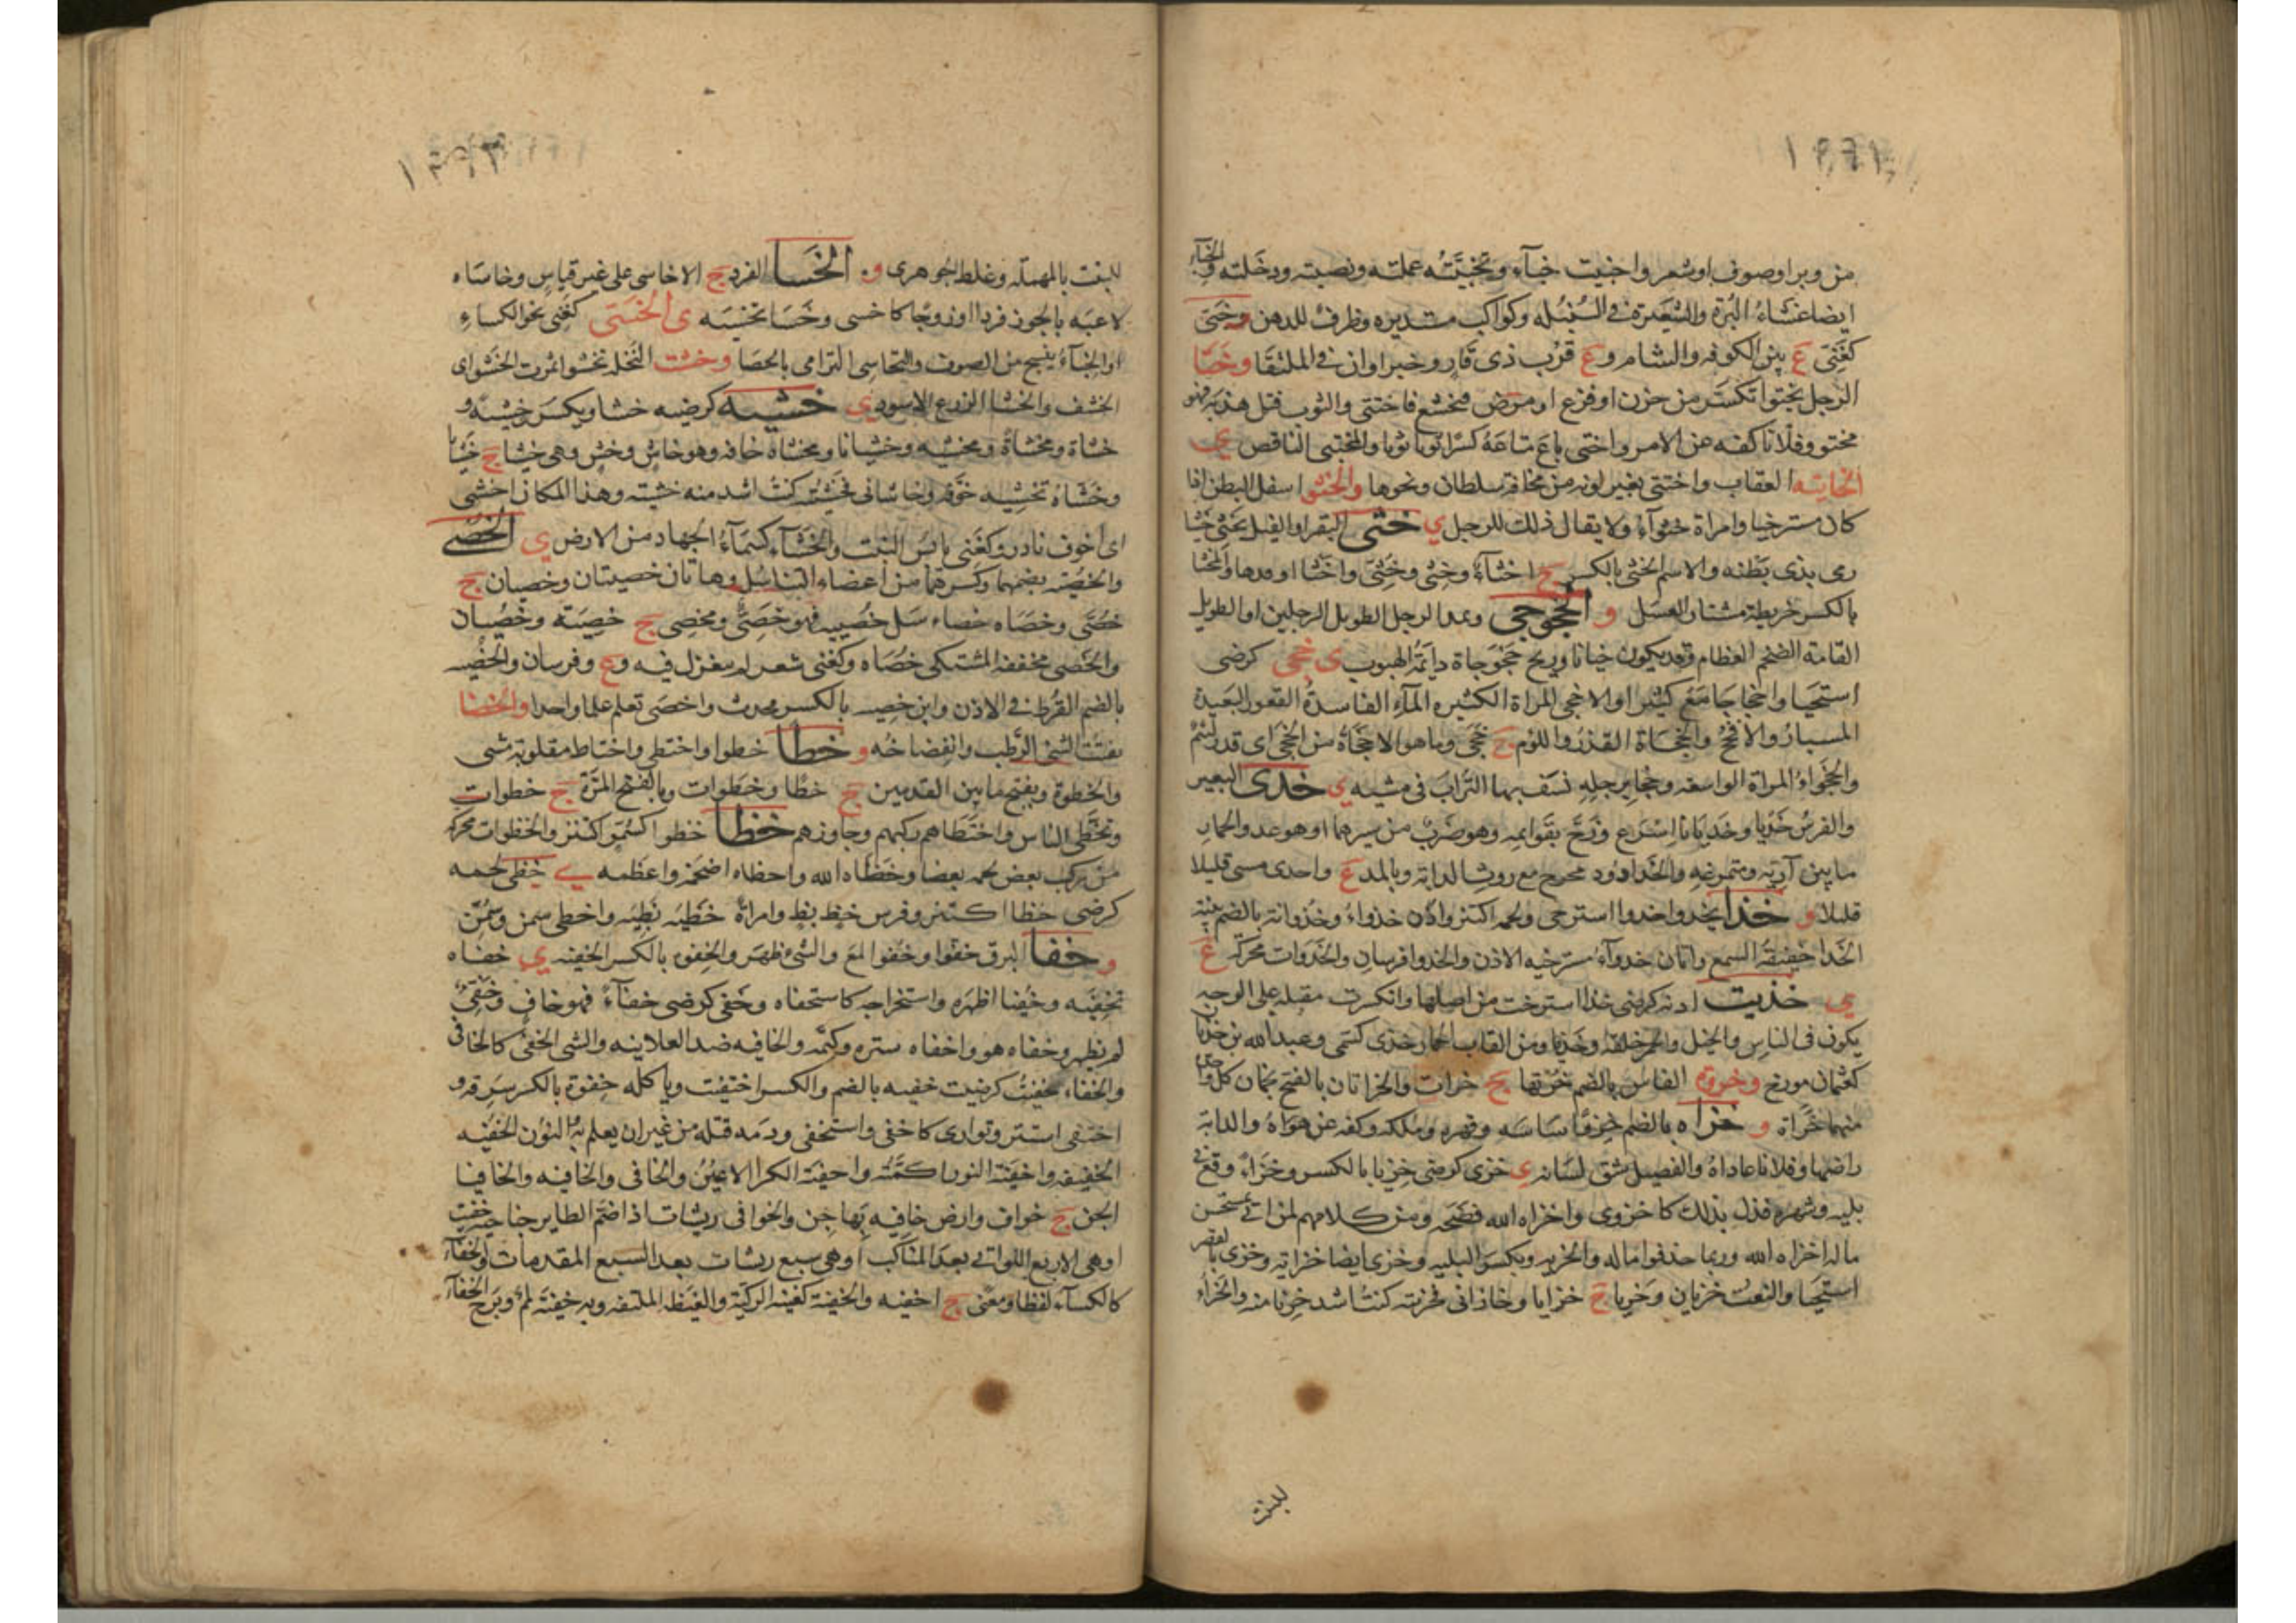 من وبر او صوف او شعر واخبيت خباء وتخبيته عملته ونصبته ودخلته والخباء
ايضا غشاء البرة والشعيرة في السنبله وكواكب مستديره وظرف للدهن وختى
كغني ع بين الكوفه والشام وع قرب ذي قار وخبراوان في الملتقا وختا
الرجل يختوا تكسر من حزن او فزع او مرض فتخشع فاختتى والثوب فتل هدبه فهو
مختو وفلانا كفه عن الامر واختى باع متاعه كسرا ثوبا ثوبا والمختتي الناقص ي
الخاتيه العقاب واختتى تغير لونه من مخافة سلطان ونحوها والخثوا سفل البطن اذا
كان مسترخيا وامراة خثواء ولا يقال ذلك للرجل ي خثى البقر او الفيل يخثي خثيا
رمى بذي بطنه والاسم الخثي بالكسر ج اخثاء وخثي وخثى واخثا اوقدها والمخثا
بالكسر خريطة مشتار العسل و الخجوجى ويمد الرجل الطويل الرجلين او الطويل
القامة الضخم العظام وقد يكون جبانا وريح خجوجاة دايمة الهبوب ي خجي كرضي
استحيا واخجا جامع كثيرا والاخجى المراة الكثيره الماء الفاسدة القعور البعيدة
المسبار والافحج والخجاة القذر واللوم ج خجى وما هو الا خجاة من الخجى اي قذر لئيم
والخجواء المراة الواسعة وخجا برجله نسف بها التراب في مشيه ي خدى البعير
والفرس خديا وخديانا اسرع وزج بقوايمه وهو ضرب من سيرهما او هو عدو الحمار
ما بين آريه ومتمرغه والخدا دود يخرج مع روث الدابة وبالمد ع واخدى مسى قليلا
قليلا و خذا يخذوا خذوا استرخى ولحمه اكتنز واذن خذواء وخذوانة بالضم بينة
الخذا خفيفة السمع واتان خذواء مسترخيه الاذن والخذوا فرسان والخذوات محركة ع
ي خذيت اذنه كرضي خذا استرخت من اصلها وانكسرت مقبلة على الوجه
يكون في الناس والخيل والحمر خلقة وخذيا ومن القاب الحمار خذي كسمي وعبد الله بن خذيا
كعثمان مورخ وخروة الفاس بالضم خرتها ج خرات والخراتان بالفتح نجمان كل واحد
منهما خراة و خزاه بالضم خزوا ساسه وقهره وملكه وكفه عن هواه والدابة
راضها وفلانا عاداه والفصيل شق لسانه ي خزي كرضي خزيا بالكسر وخزاء وقع في
بليه وشهره فذل بذلك كاخزوى واخزاه الله فضحه ومن كلامهم لمن اتى بمستحسن
ما له اخزاه الله وربما حذفوا ماله والخزيه وبكسر البليه وخزي ايضا خزاية وخزى بالقصر
استحيا والنعت خزيان وخزيا ج خزايا وخازاني فخزيته كنت اشد خزيا منه والخزاء
للبنت
للنبت بالمهمله وغلط الجوهرى و الخسا الفرد ج الاخاسي على غير قياس وخاساه
لاعبه بالجوز فردا او زوجا كاخسى وخسا تخسيه ي الخسى كغني نحو الكساء
او الخباء ينسج من الصوف والتخاسي الترامي بالحصا وخشت النخله تخشوا اثمرت الخشو اي
الخشف والخشا الزرع الاسود ي خشيه كرضيه خشا ويكسر وخشية و
خشاة ومخشاة ومخشيه وخشيانا وتخشاه خافه وهو خاش وخش وهي خشيا ج خشايا
وخشاه تخشيه خوفه وخاشاني فخشيته كنت اشد منه خشيته وهذا المكان اخشى
اي اخوف نادر وكغني يابس النبت والخشاء كسماء الجهاد من الارض ي الخصى
والخصيه بضمهما وكسرهما من اعضاء التناسل وهاتان خصيتان وخصيان ج
خصى وخصاه خصاء سل خصييه فهو خصي ومخصي ج خصية وخصيان
والخصى مخففة المشتكى خصاه وكغني شعر لم يغزل فيه وع وفرسان والخصيه
بالضم القرط في الاذن وابن خصيه بالكسر محدث واخصى تعلم علما واحدا والخضا
تفتت الشي الرطب وانفضاخه و خطا خطوا واختطى واختاط مقلوبة مشى
والخطوة وبفتح ما بين القدمين ج خطا وخطوات وبالفتح المرة ج خطوات
وتخطى الناس واختطاهم ركبهم وجاوزهم خظا خظوا كسمو اكتنز والخظوات محركة
من يركب بعض لحمه بعضا وخظاه الله واخظاه اضخمه واعظمه ي خظي لحمه
كرضي خظا اكتنز وفرس خظ بظ وامراة خظيه بظيه واخظى سمن وسمن
و خفا البرق خفوا وخفوا لمع والشي ظهر والخفوه بالكسر الخفيه ي خفاه
يخفيه وخفيا اظهره واستخراجه كاستخفاه وخفي كرضي خفاء فهو خاف وخفي
لم يظهر وخفاه هو واخفاه ستره وكتمه والخافيه ضد العلانيه والشي الخفي كالخافي
والخفاء خفيت كرضيت خفيه بالضم والكسر اختفيت وياكله خفوة بالكسر سرقه و
اختفى استتر وتوارى كاخفى واستخفى ودمه قتله من غير ان يعلم به والنون الخفيه
الخفيفه واخفيه النور اكمته واخفية الكرا الاعين والخافي والخافيه والخافيا
الجن ج خواف وارض خافيه بها جن والخوافي ريشات اذا ضم الطاير جناحيه خفيت
او هي الاربع اللواتي بعد المناكب او هي سبع ريشات بعد السبع المقدمات والخفاء
كالكساء لفظا ومعنى ج اخفيه والخفية كغنيه الركية والغيظه الملتفه وبه خفية لمم وبرح الخفاء